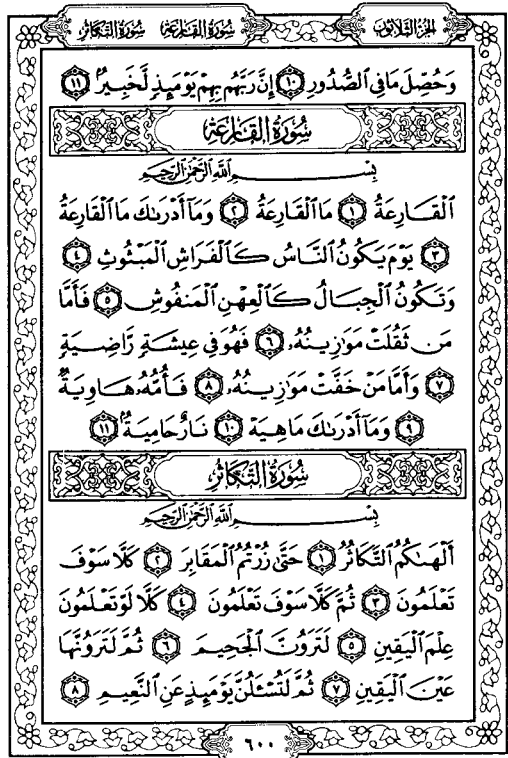 الجزء الثلاثون سورة القارعة سورة التكاثر
وَحُصِّلَ مَا فِي ٱلصُّدُورِ ۝١٠ إِنَّ رَبَّهُم بِهِمْ يَوْمَئِذٍ لَّخَبِيرٌۢ ۝١١
سُورَةُ القَارِعَة
بِسْمِ ٱللَّهِ ٱلرَّحْمَٰنِ ٱلرَّحِيمِ
ٱلْقَارِعَةُ ۝١ مَا ٱلْقَارِعَةُ ۝٢ وَمَآ أَدْرَىٰكَ مَا ٱلْقَارِعَةُ
۝٣ يَوْمَ يَكُونُ ٱلنَّاسُ كَٱلْفَرَاشِ ٱلْمَبْثُوثِ ۝٤
وَتَكُونُ ٱلْجِبَالُ كَٱلْعِهْنِ ٱلْمَنفُوشِ ۝٥ فَأَمَّا
مَن ثَقُلَتْ مَوَٰزِينُهُۥ ۝٦ فَهُوَ فِي عِيشَةٍ رَّاضِيَةٍ
۝٧ وَأَمَّا مَنْ خَفَّتْ مَوَٰزِينُهُۥ ۝٨ فَأُمُّهُۥ هَاوِيَةٌ
۝٩ وَمَآ أَدْرَىٰكَ مَا هِيَهْ ۝١٠ نَارٌ حَامِيَةٌۢ ۝١١
سُورَةُ التَّكَاثُر
بِسْمِ ٱللَّهِ ٱلرَّحْمَٰنِ ٱلرَّحِيمِ
أَلْهَىٰكُمُ ٱلتَّكَاثُرُ ۝١ حَتَّىٰ زُرْتُمُ ٱلْمَقَابِرَ ۝٢ كَلَّا سَوْفَ
تَعْلَمُونَ ۝٣ ثُمَّ كَلَّا سَوْفَ تَعْلَمُونَ ۝٤ كَلَّا لَوْ تَعْلَمُونَ
عِلْمَ ٱلْيَقِينِ ۝٥ لَتَرَوُنَّ ٱلْجَحِيمَ ۝٦ ثُمَّ لَتَرَوُنَّهَا
عَيْنَ ٱلْيَقِينِ ۝٧ ثُمَّ لَتُسْـَٔلُنَّ يَوْمَئِذٍ عَنِ ٱلنَّعِيمِ ۝٨
٦٠٠